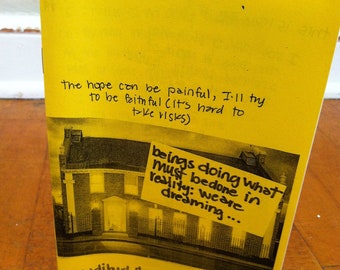 the hope can be painful, I'll try
to be faithful (it's hard to
take risks)
beings doing what
must be done in
reality: we are
dreaming...